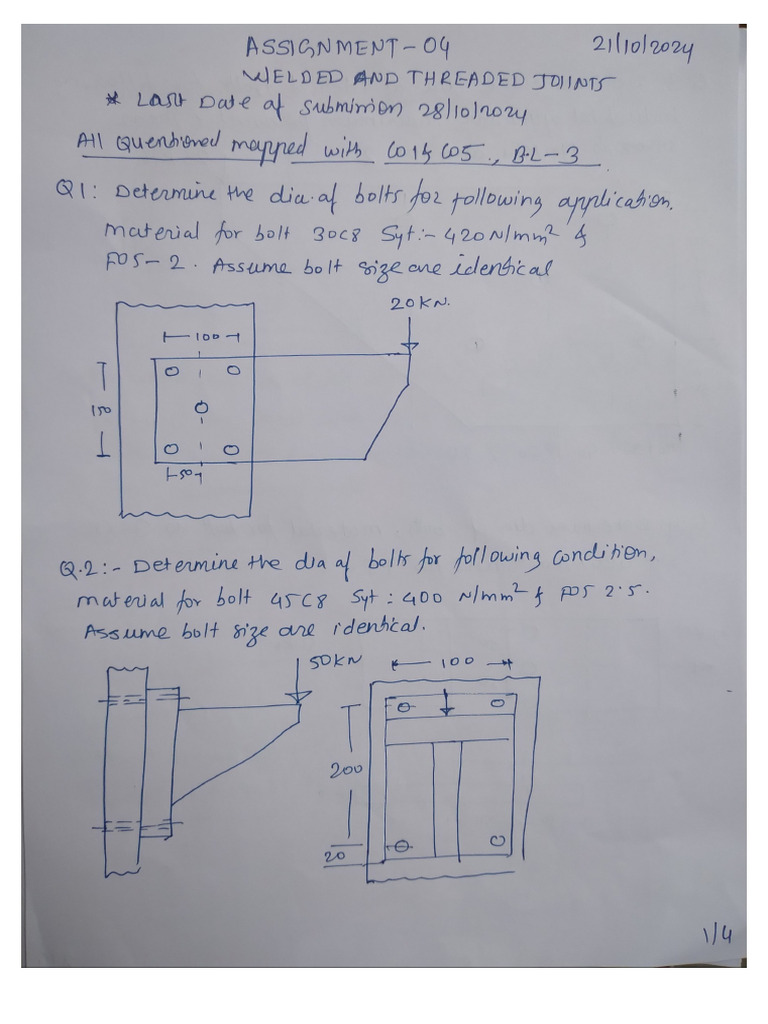 ASSIGNMENT-04 21/10/2024
WELDED AND THREADED JOIINTS
* Last Date of Submission 28/10/2024
All Questioned mapped with CO1 & CO5, B.L-3
Q1: Determine the dia. of bolts for following application.
material for bolt 30C8 Syt:- 420 N/mm² &
FOS-2. Assume bolt size are identical
20KN.
100
150
50
Q.2:- Determine the dia of bolts for following condition,
material for bolt 45C8 Syt: 400 N/mm² & FOS 2.5.
Assume bolt size are identical.
50KN
100
200
20
1/4